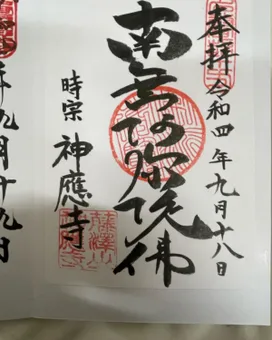 奉拝 令和四年九月十八日
南無阿弥陀佛
時宗 神應寺
年九月十九日